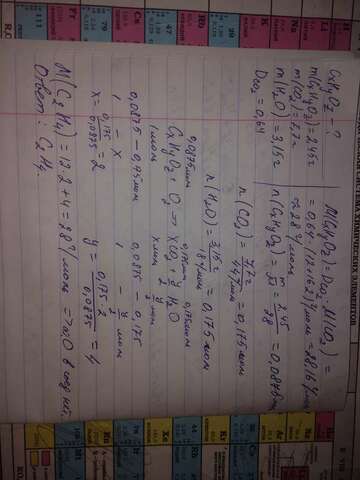 CxHyOz - ?
m(CxHyOz) = 2,45г
m(CO₂) = 7,7г
m(H₂O) = 3,15г
Dco₂ = 0,64
M(CxHyOz) = Dco₂ · M(CO₂) =
= 0,64 · (12+16·2) г/моль = 28,16 г/моль
≈ 28 г/моль
n(CxHyOz) = m/M = 2,45/28 = 0,0875 моль
n(CO₂) = 7,7г / 44 г/моль = 0,175 моль
n(H₂O) = 3,15г / 18 г/моль = 0,175 моль
0,0875 моль 0,175 моль 0,175 моль
CxHyOz + O₂ → XCO₂ + y/2 H₂O
1 моль X моль y/2 моль
0,0875 - 0,175 моль 0,0875 - 0,175
1 - X 1 - y/2 моль
X = 0,175/0,0875 = 2 y = 0,175·2/0,0875 = 4
M(C₂H₄) = 12·2+4 = 28 г/моль => O в соед. нет.
Ответ: C₂H₄.